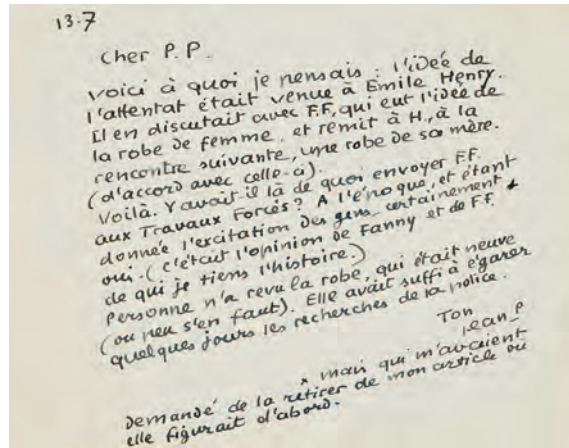 13.7
Cher P.P.
Voici à quoi je pensais : l'idée de
l'attentat était venue à Emile Henry.
Il en discutait avec F.F, qui eut l'idée de
la robe de femme, et remit à H., à la
rencontre suivante, une robe de sa mère.
(d'accord avec celle-ci).
Voilà. Y avait-il là de quoi envoyer F.F.
aux Travaux Forcés ? A l'époque, et étant
donnée l'excitation des gens, certainement
oui. (C'était l'opinion de Fanny et de F.F. x
de qui je tiens l'histoire.)
Personne n'a revu la robe, qui était neuve
(ou peu s'en faut). Elle avait suffi à égarer
quelques jours les recherches de la police.
Ton
Jean P
x mais qui m'avaient
demandé de la retirer de mon article ou
elle figurait d'abord.